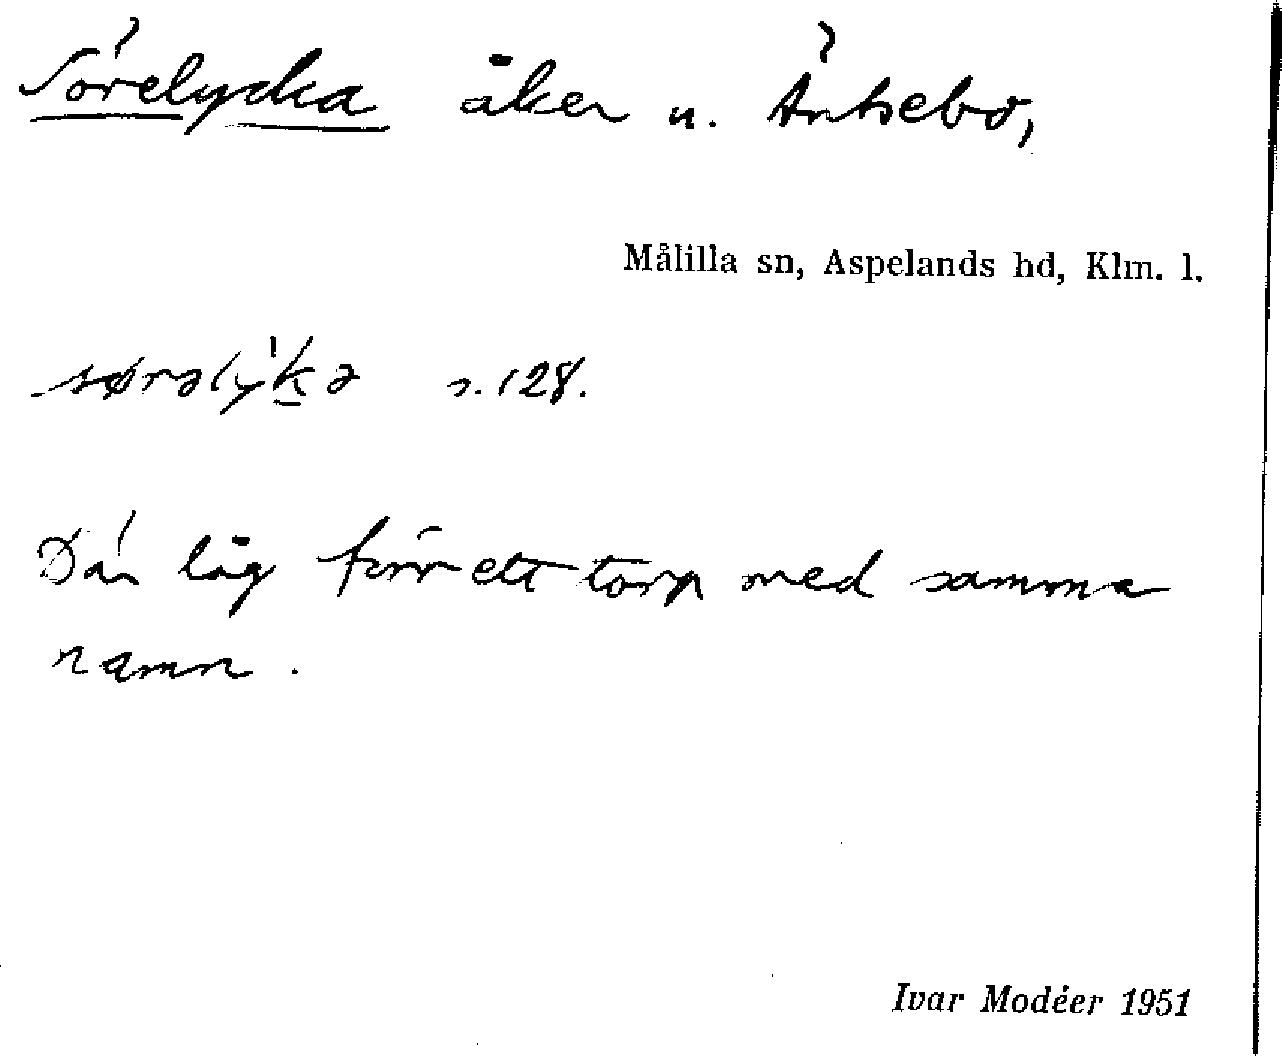 Sörelycka åker u. Äntsebo,
Målilla sn, Aspelands hd, Klm. l.
sørəlyḵə s. 128.
Där låg förr ett torp med samma
namn.
Ivar Modéer 1951